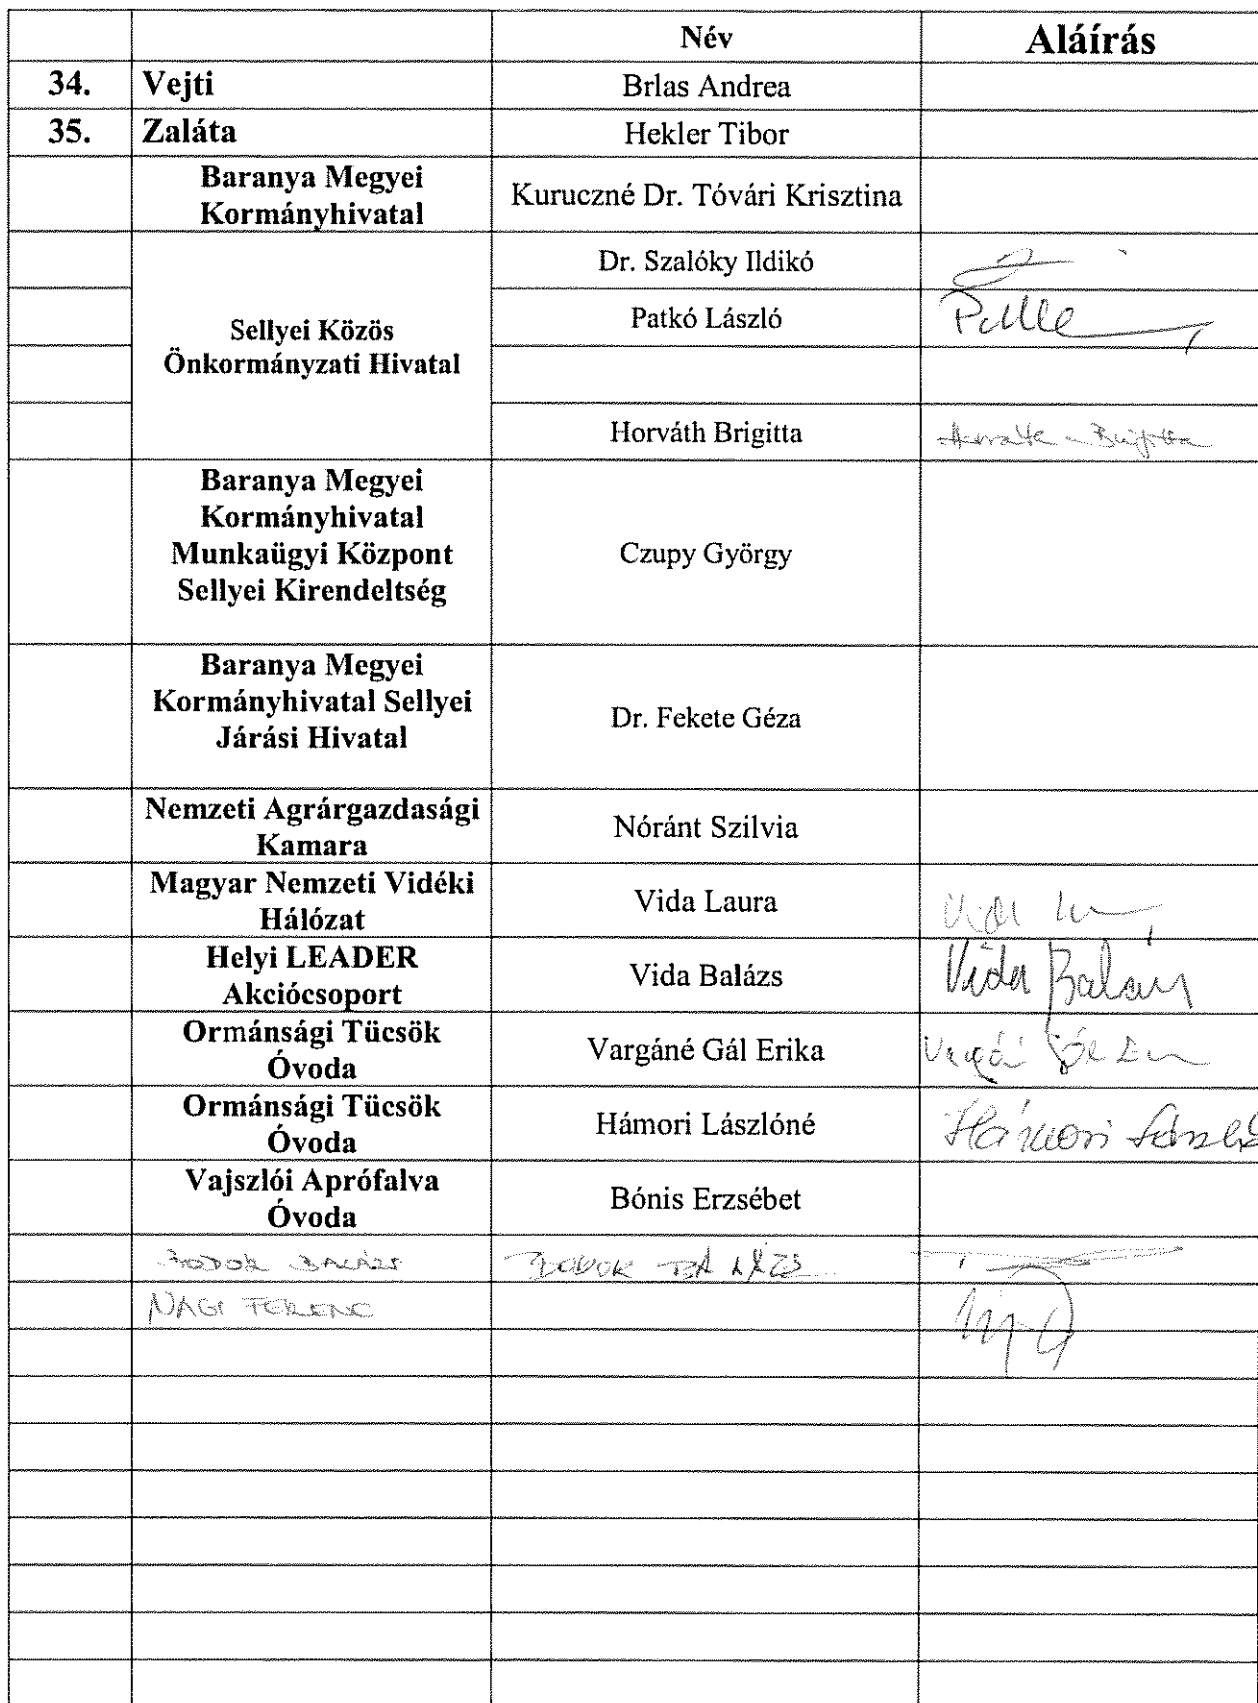 Név Aláírás
34. Vejti Brlas Andrea
35. Zaláta Hekler Tibor
Baranya Megyei
Kormányhivatal
Kuruczné Dr. Tóvári Krisztina
Sellyei Közös
Önkormányzati Hivatal
Dr. Szalóky Ildikó
Patkó László
Horváth Brigitta Horváth Brigitta
Baranya Megyei
Kormányhivatal
Munkaügyi Központ
Sellyei Kirendeltség
Czupy György
Baranya Megyei
Kormányhivatal Sellyei
Járási Hivatal
Dr. Fekete Géza
Nemzeti Agrárgazdasági
Kamara
Nóránt Szilvia
Magyar Nemzeti Vidéki
Hálózat
Vida Laura Vida
Helyi LEADER
Akciócsoport
Vida Balázs Vida Balázs
Ormánsági Tücsök
Óvoda
Vargáné Gál Erika
Ormánsági Tücsök
Óvoda
Hámori Lászlóné Hámori
Vajszlói Aprófalva
Óvoda
Bónis Erzsébet
BODOK BALÁZS BODOK BALÁZS
NAGI FERENC